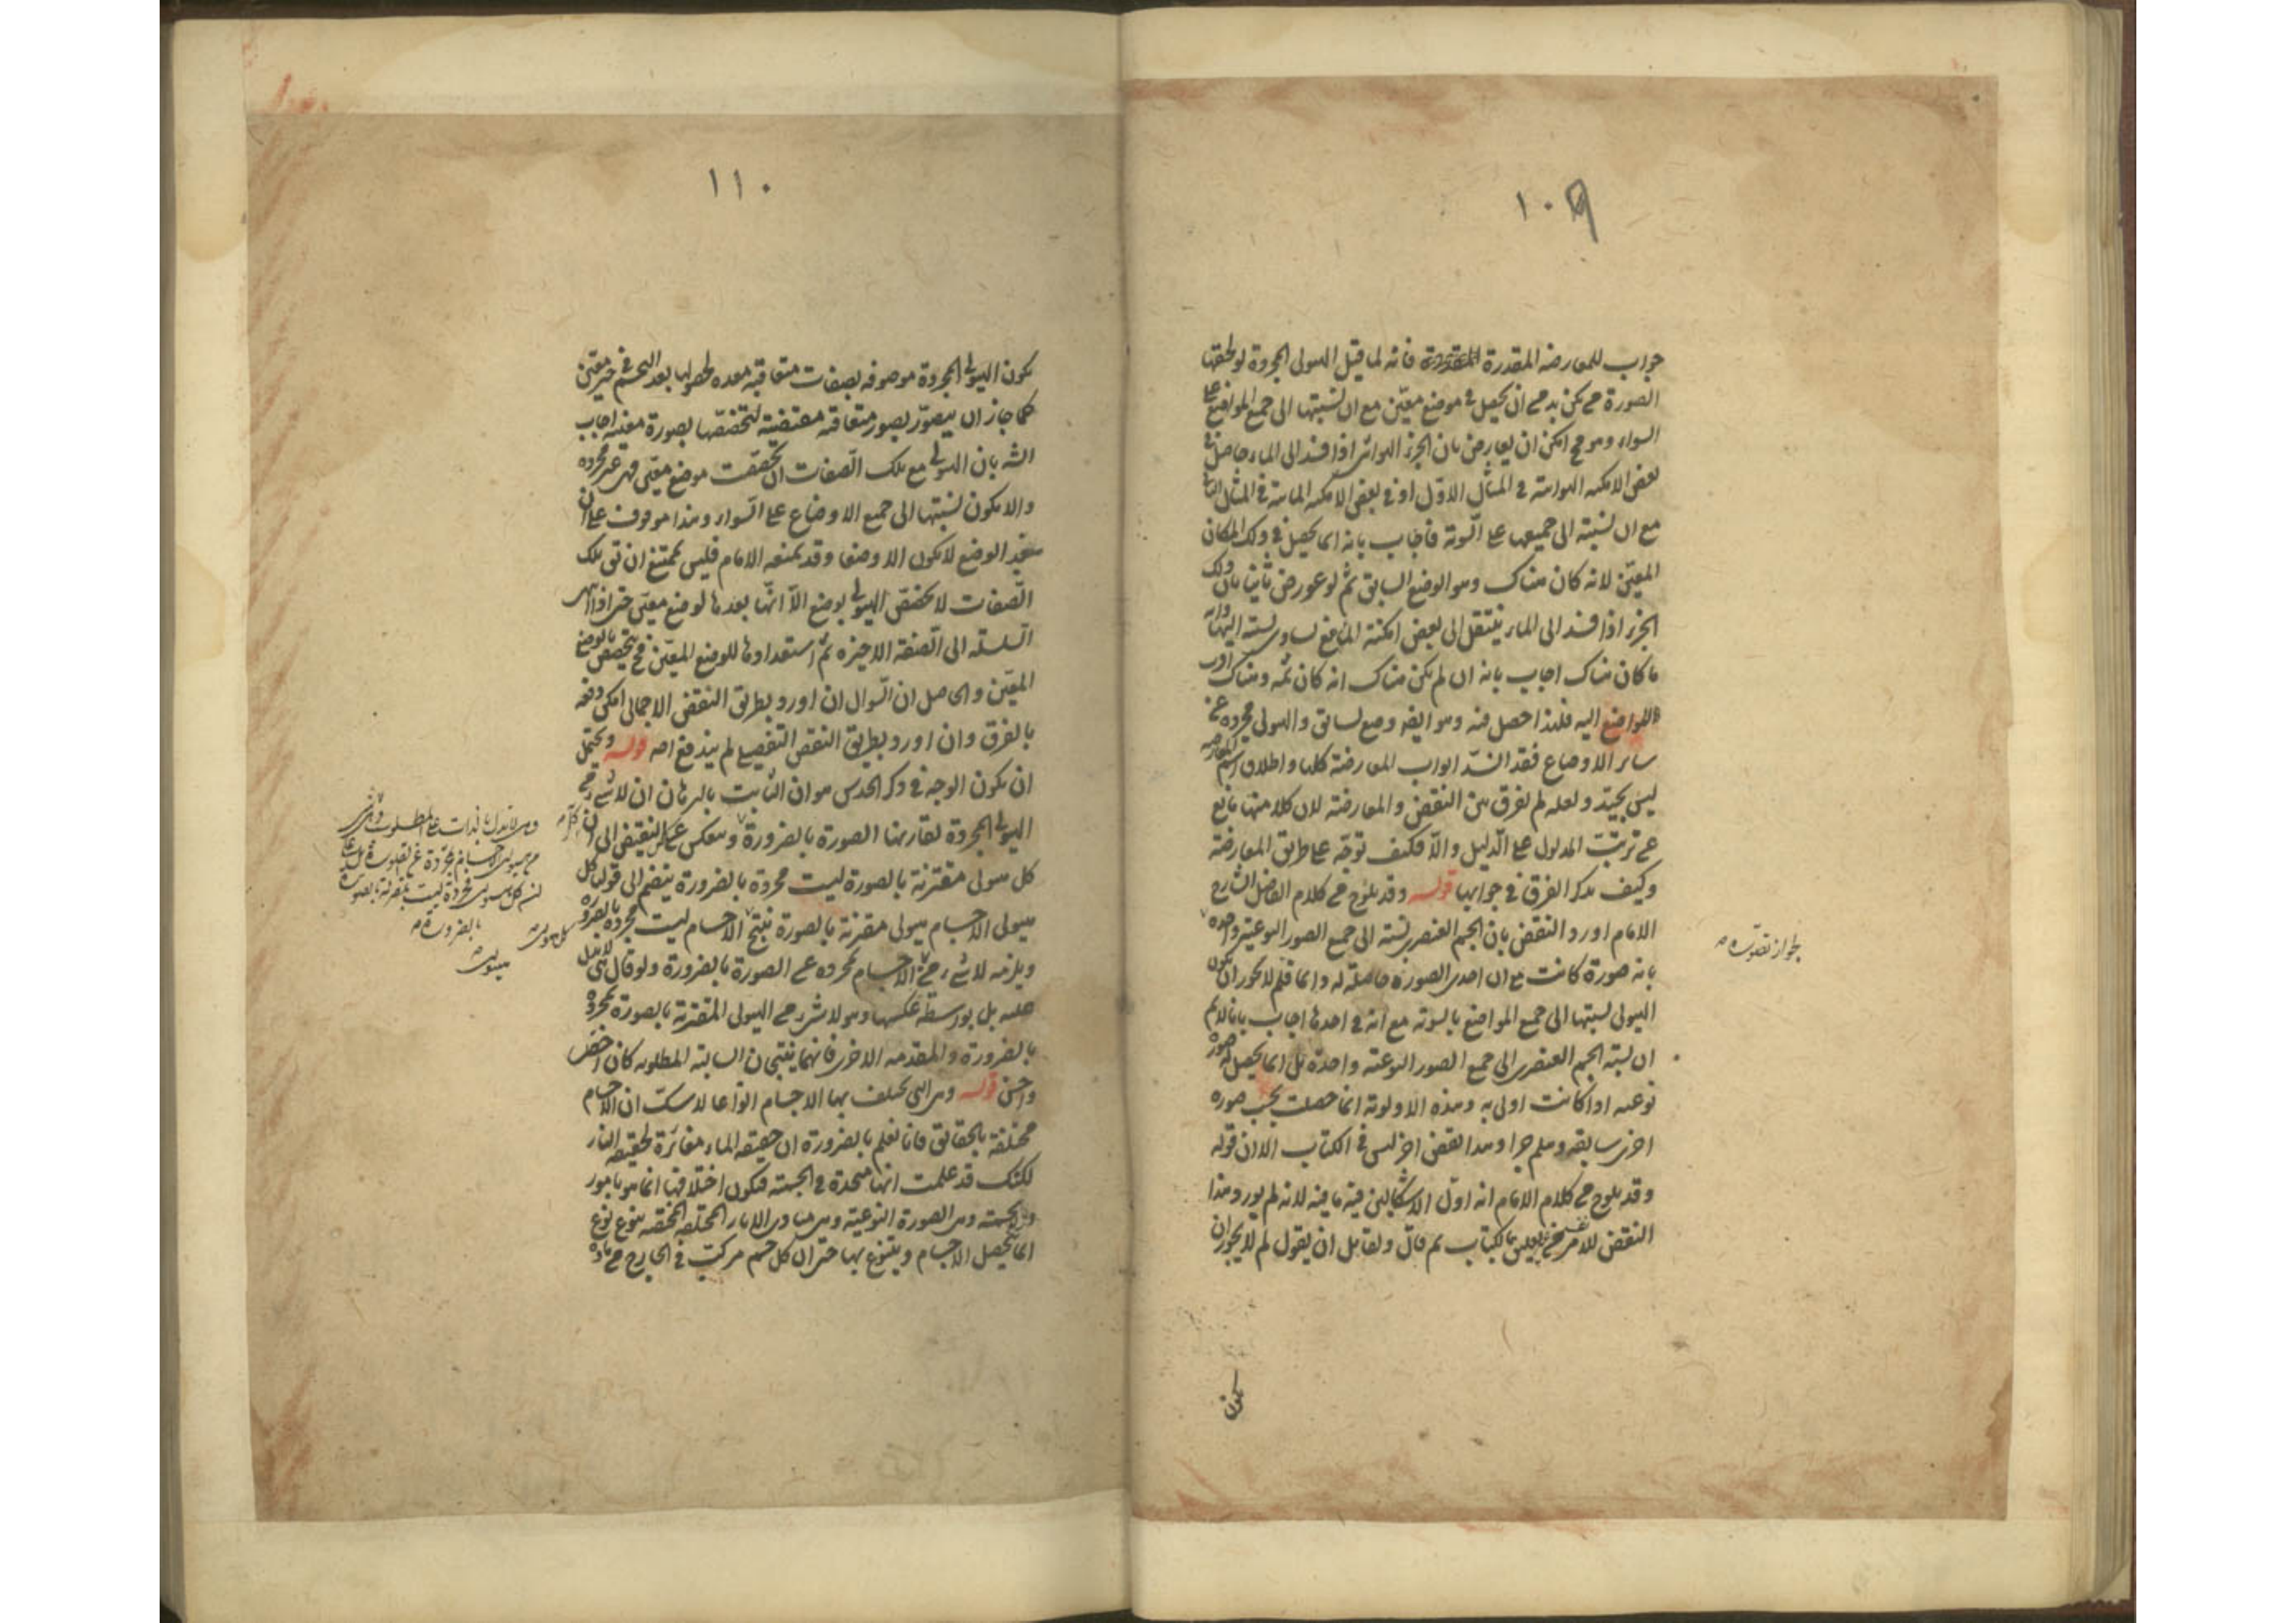 ١٠٩
جواب للمعارضه المقدرة فانه لما قيل الهيولى المجردة لو لحقها
الصورة لم يكن بد من ان يحصل فى موضع معين مع ان نسبتها الى جميع المواضع على
السواء وهو مح امكن ان يعارض بان الجزء الهوائى اذا فسد الى الماء حاصل فى
بعض الامكنه الهوائية فى المثال الاول او فى بعض الامكنه المائية فى المثال الثانى
مع ان نسبته الى جميعها على السوية فاجاب بانه انما يحصل فى ذلك المكان
المعين لانه كان هناك وهو الوضع السابق ثم لو عورض ثانيا بان ذلك
الجزء اذا فسد الى الماء ينتقل الى بعض امكنة الماء مع تساوى نسبته اليها وانه
ما كان هناك اجاب بانه ان لم يكن هناك انه كان ثمه وهناك اقرب
المواضع اليه فلهذا حصل فيه وهو ايضا وضع سابق والهيولى مجردة عن
سائر الاوضاع فقد انسد ابواب المعارضة كلها واطلاق اسم المعارضه
ليس بجيد ولعله لم يفرق بين النقض والمعارضة لان كلا منهما مانع
عن ترتب المدلول على الدليل والا فكيف توجه على طريق المعارضة
وكيف يذكر الفرق فى جوابها قوله وقد يلوح من كلام الفاضل الشارح
الامام اورد النقض بان الجسم العنصرى نسبته الى جميع الصور النوعية واحده
بانه صورة كانت مع ان احدى الصورة حاصلة له دائما فلم لا يجوز ان يكون
الهيولى نسبتها الى جميع المواضع بالسوية مع انه فى احدها اجاب بانا لا نم
ان نسبة الجسم العنصرى الى جميع الصور النوعية واحدة بل انما يحصل له صورة
نوعيه اذا كانت اولى به وهذه الاولوية انما حصلت بحسب صورة
اخرى سابقه وهلم جرا وهذا نقض اخر ليس فى الكتاب الا ان قوله
وقد يلوح من كلام الامام انه اول الاشكالين فيه ما فيه لانه لم يورد هذا
النقض بالكتاب ثم قال ولقائل ان يقول لم لا يجوز ان
يكون
بجواز تصوره
١١٠
يكون الهيولى المجردة موصوفه بصفات متعاقبة معده لحصولها بعد التجسم فى حيز معين
كما جاز ان يتصور بصور متعاقبة مقتضية لتخصصها بصورة معينه اجاب
الشه بان الهيولى مع تلك الصفات ان تخصصت بوضع معين فهى غير مجرده
والا يكون نسبتها الى جميع الاوضاع على السواء وهذا موقوف على ان
الوضع لا يكون الا وضعا وقد يمنعه الامام فليس يمتنع ان تى تلك
الصفات لا تخصص الهيولى بوضع الا انها بعدها لوضع معين حتى اذا انتهى
السلسلة الى الصفة الاخيرة تم استعدادها للوضع المعين فح يتخصص بالوضع
المعين والحاصل ان السؤال ان اورد بطريق النقض الاجمالى امكن دفعه
بالفرق وان اورد بطريق النقض التفصيلى لم يندفع اصه قوله ويحتمل
ان يكون الوجه فى ذكر الحدس هو ان الثابت بالبرهان ان لا شئ من
الهيولى المجردة تقارنها الصورة بالضرورة وينعكس عكس النقيض الى ان
كل هيولى مقترنة بالصورة ليست مجردة بالضرورة ينضم الى قولنا كل
هيولى الاجسام هيولى مقترنة بالصورة ينتج الاجسام ليست مجردة بالضرورة
ويلزمه لا شئ من الاجسام مجرده عن الصورة بالضرورة ولو قال
عليه بل بواسطة عكسها وهو لا شئ من الهيولى المقترنة بالصورة مجردة
بالضرورة والمقدمه الاخرى فانهما ينتجان السالبة المطلوبه كان اخصر
واحسن قوله وهى التى تختلف بها الاجسام انواعا لا شك ان الاجسام
مختلفة بالحقائق فانا نعلم بالضرورة ان حقيقه الماء مغائرة لحقيقه النار
لكنك قد علمت انها متحدة فى الجسمية فيكون اختلافها انما هو بامور
الجسمية وهى الصورة النوعية وهى مبادى الاثار المختلفه المختصه بنوع نوع
انما يتحصل الاجسام ويتنوع بها حتى ان كل جسم مركب فى الخارج من مادة
بالضرورة
كل هيولى
هيولى